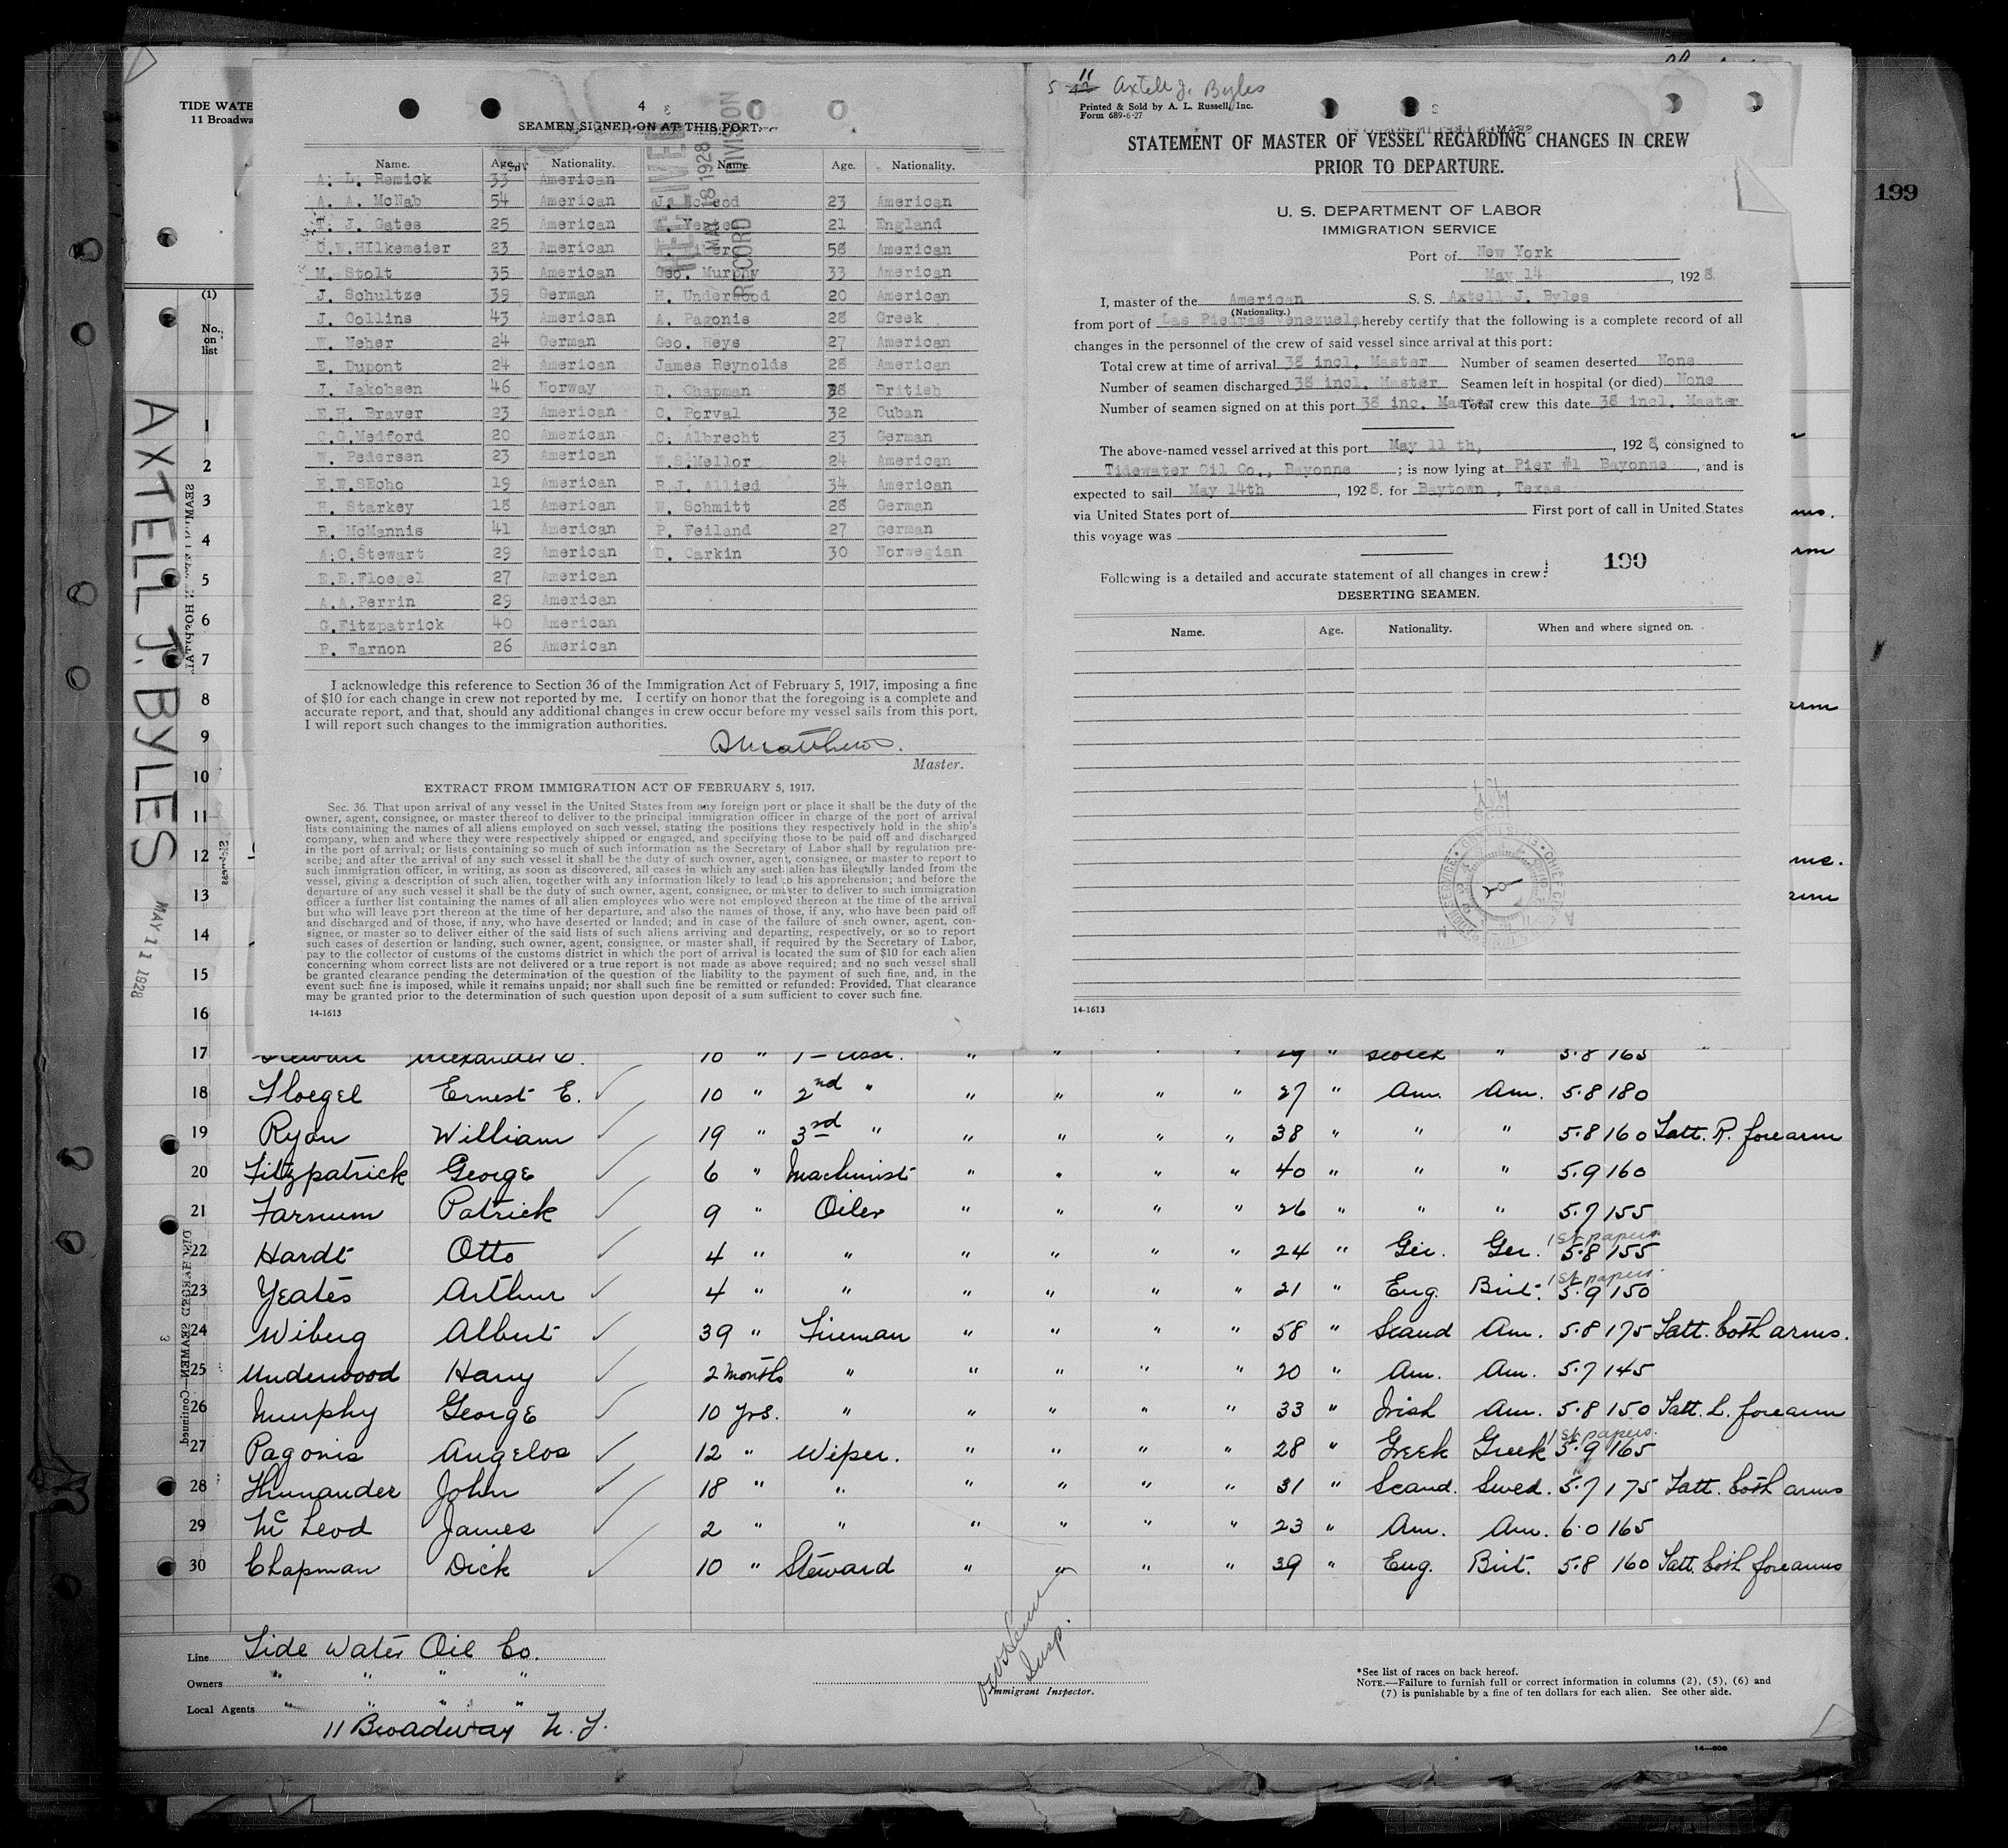 TIDE WATE
11 Broadwa
199
4
SEAMEN SIGNED ON AT THIS PORT.
Name. Age. Nationality. Name. Age. Nationality.
A. L. Remick 33 American
A. A. McNab 54 American J. McLeod 23 American
T. J. Gates 25 American 21 England
C.W.HIlkemeier 23 American 58 American
M. Stolt 35 American Geo. Murphy 33 American
J. Schultze 39 German H. Underwood 20 American
J. Collins 43 American A. Pagonis 28 Greek
W. Neher 24 German Geo. Heys 27 American
E. Dupont 24 American James Reynolds 28 American
J. Jakobsen 46 Norway D. Chapman British
E.H. Braver 23 American C. Porval 32 Cuban
C.G.Medford 20 American C. Albrecht 23 German
W. Pedersen 23 American W.S.Mellor 24 American
E.W.SEcho 19 American R.J. Allied 34 American
H. Starkey 18 American W. Schmitt 28 German
R. McMannis 41 American P. Feiland 27 German
A.C.Stewart 29 American D. Carkin 30 Norwegian
E.E.Floegel 27 American
A.A.Perrin 29 American
G.Fitzpatrick 40 American
P. Farnon 26 American
RECEIVED
MAY 18 1928
RECORD DIVISION
I acknowledge this reference to Section 36 of the Immigration Act of February 5, 1917, imposing a fine
of $10 for each change in crew not reported by me. I certify on honor that the foregoing is a complete and
accurate report, and that, should any additional changes in crew occur before my vessel sails from this port,
I will report such changes to the immigration authorities.
Matthews.
Master.
EXTRACT FROM IMMIGRATION ACT OF FEBRUARY 5, 1917.
Sec. 36. That upon arrival of any vessel in the United States from any foreign port or place it shall be the duty of the
owner, agent, consignee, or master thereof to deliver to the principal immigration officer in charge of the port of arrival
lists containing the names of all aliens employed on such vessel, stating the positions they respectively hold in the ship's
company, when and where they were respectively shipped or engaged, and specifying those to be paid off and discharged
in the port of arrival; or lists containing so much of such information as the Secretary of Labor shall by regulation pre-
scribe; and after the arrival of any such vessel it shall be the duty of such owner, agent, consignee, or master to report to
such immigration officer, in writing, as soon as discovered, all cases in which any such alien has illegally landed from the
vessel, giving a description of such alien, together with any information likely to lead to his apprehension; and before the
departure of any such vessel it shall be the duty of such owner, agent, consignee, or master to deliver to such immigration
officer a further list containing the names of all alien employees who were not employed thereon at the time of the arrival
but who will leave port thereon at the time of her departure, and also the names of those, if any, who have been paid off
and discharged and of those, if any, who have deserted or landed; and in case of the failure of such owner, agent, con-
signee, or master so to deliver either of the said lists of such aliens arriving and departing, respectively, or so to report
such cases of desertion or landing, such owner, agent, consignee, or master shall, if required by the Secretary of Labor,
pay to the collector of customs of the customs district in which the port of arrival is located the sum of $10 for each alien
concerning whom correct lists are not delivered or a true report is not made as above required; and no such vessel shall
be granted clearance pending the determination of the question of the liability to the payment of such fine, and, in the
event such fine is imposed, while it remains unpaid; nor shall such fine be remitted or refunded: Provided, That clearance
may be granted prior to the determination of such question upon deposit of a sum sufficient to cover such fine.
14-1613
5 11 Axtell J. Byles
Printed & Sold by A. L. Russell, Inc.
Form 689-6-27
STATEMENT OF MASTER OF VESSEL REGARDING CHANGES IN CREW
PRIOR TO DEPARTURE.
U. S. DEPARTMENT OF LABOR
IMMIGRATION SERVICE
Port of New York
May 14, 1928
I, master of the American S. S. Axtell J. Byles
(Nationality.)
from port of Las Piedras Venezuela, hereby certify that the following is a complete record of all
changes in the personnel of the crew of said vessel since arrival at this port:
Total crew at time of arrival 38 incl. Master Number of seamen deserted None
Number of seamen discharged 38 incl. Master Seamen left in hospital (or died) None
Number of seamen signed on at this port 38 inc. Master Total crew this date 38 incl. Master
The above-named vessel arrived at this port May 11 th, , 1928, consigned to
Tidewater Oil Co., Bayonne ; is now lying at Pier #1 Bayonne , and is
expected to sail May 14th , 1928. for Baytown , Texas
via United States port of First port of call in United States
this voyage was
199
Following is a detailed and accurate statement of all changes in crew:
DESERTING SEAMEN.
Name. Age. Nationality. When and where signed on.
14-1613
AXTELL J. BYLES
MAY 11 1928
(1)
No. on list
1
2
3
4
5
6
7
8
9
10
11
12
13
14
15
16
17 Stewart Alexander C. 10 " 1st Asst. " " " " 29 " Scotch " 5.8 165
18 Floegel Ernest E. 10 " 2nd " " " " " 27 " Am. Am. 5.8 180
19 Ryan William 19 " 3rd " " " " " 38 " " " 5.8 160 Tatt. R. forearm
20 Fitzpatrick George 6 " Machinist " " " " 40 " " " 5.9 160
21 Farnum Patrick 9 " Oiler " " " " 26 " " " 5.7 155
22 Hardt Otto 4 " " " " " " 24 " Ger. Ger. 1st papers 5.8 155
23 Yeates Arthur 4 " " " " " " 21 " Eng. Brit. 1st papers. 5.9 150
24 Wiberg Albert 39 " Fireman " " " " 58 " Scand Am. 5.8 175 Tatt. both arms.
25 Underwood Harry 2 months " " " " " 20 " Am. Am. 5.7 145
26 Murphy George 10 yrs. " " " " " 33 " Irish Am. 5.8 150 Tatt. L. forearm
27 Pagonis Angelos 12 " Wiper. " " " " 28 " Greek Greek 1st papers. 5.9 165
28 Thunander John 18 " " " " " " 31 " Scand. Swed. 5.7 175 Tatt. both arms
29 McLeod James 2 " " " " " " 23 " Am. Am. 6.0 165
30 Chapman Dick 10 " Steward " " " " 39 " Eng. Brit. 5.8 160 Tatt. both forearms
Line Tide Water Oil Co.
Owners " " " "
Local Agents " " " "
11 Broadway N. Y.
Insp.
Immigrant Inspector.
*See list of races on back hereof.
NOTE.—Failure to furnish full or correct information in columns (2), (5), (6) and
(7) is punishable by a fine of ten dollars for each alien. See other side.